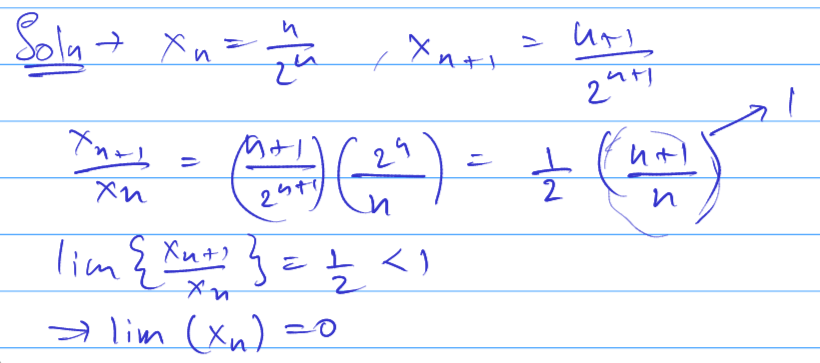 Soln → xₙ = n/2ⁿ , xₙ₊₁ = (n+1)/2ⁿ⁺¹
xₙ₊₁/xₙ = ((n+1)/2ⁿ⁺¹)(2ⁿ/n) = 1/2 ((n+1)/n) → 1
lim{xₙ₊₁/xₙ} = 1/2 < 1
→ lim (xₙ) = 0